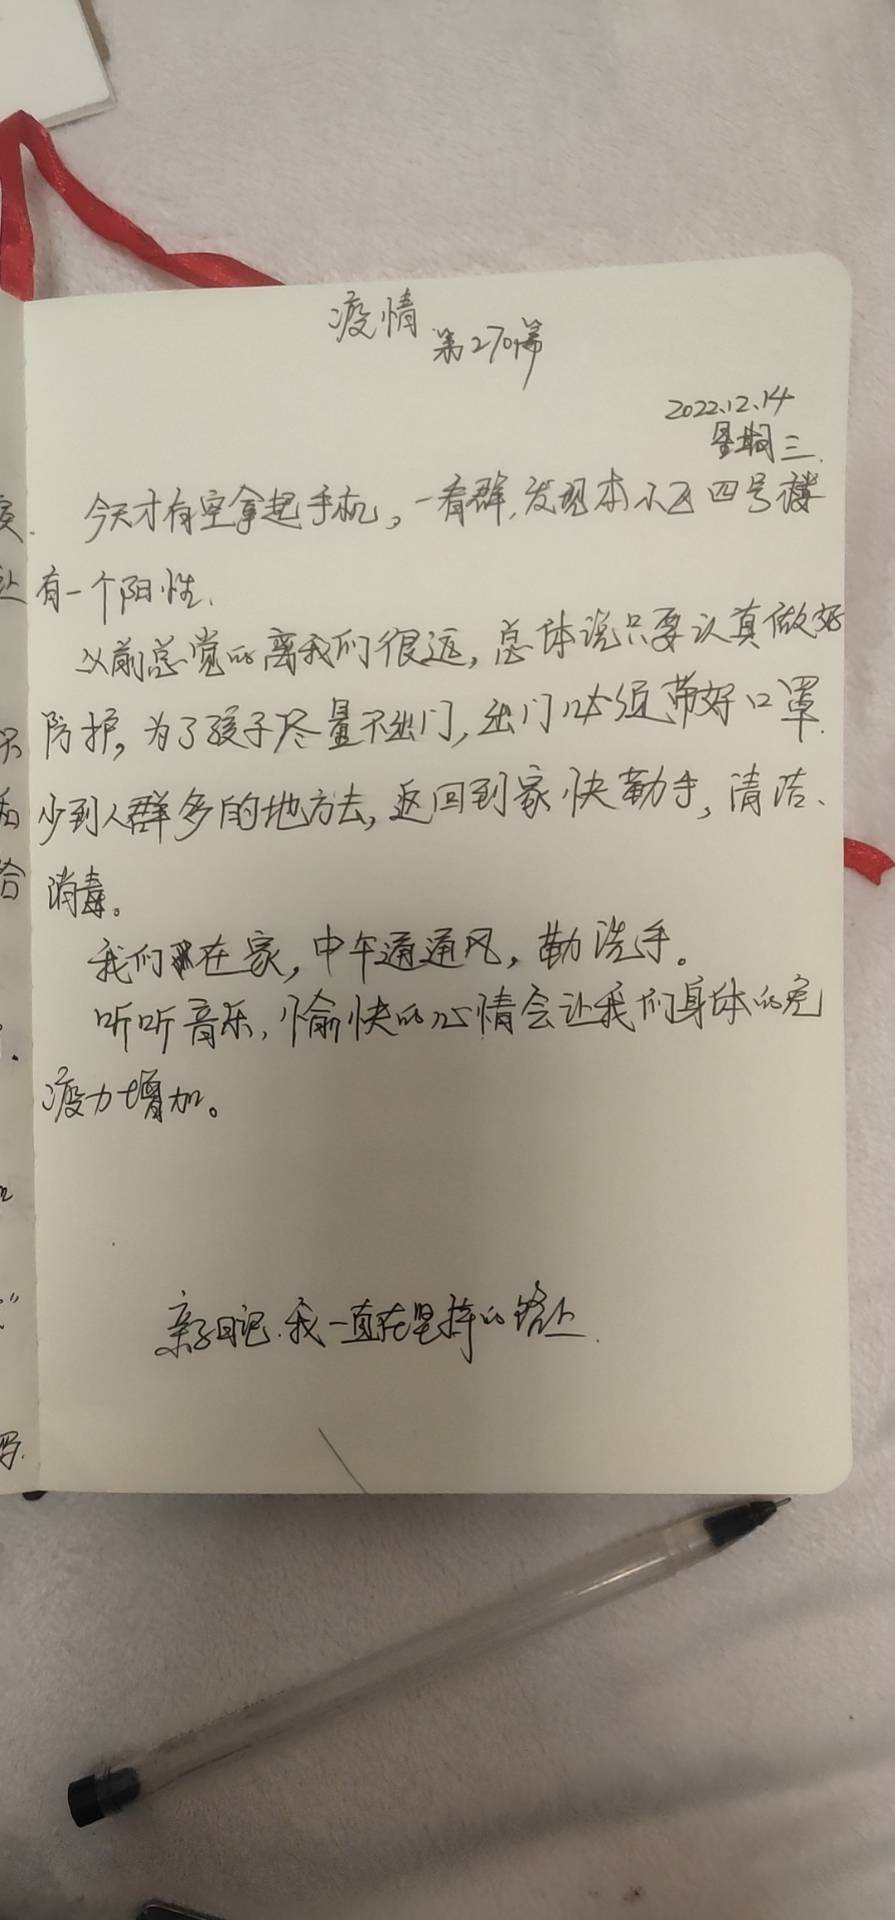 疫情
第270篇
2022.12.14
星期三.
今天才有空拿起手机，一看群，发现本小区四号楼
有一个阳性.
以前总觉的离我们很远，总体说只要认真做好
防护，为了孩子尽量不出门，出门必须带好口罩.
少到人群多的地方去，返回到家快勤手，清洁、
消毒。
我们在家，中午通通风，勤洗手。
听听音乐，愉快的心情会让我们身体的免
疫力增加。
亲子日记.我一直在坚持的路上.